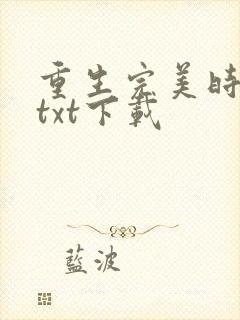 重生完美時
txt下載
藍波